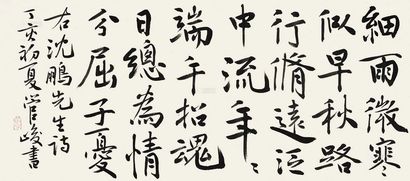 細雨微寒
似早秋路
行脩遠泛
中流年〻
端午招魂
日總為情
分屈子憂
右沈鵬先生詩
丁亥初夏管峻書